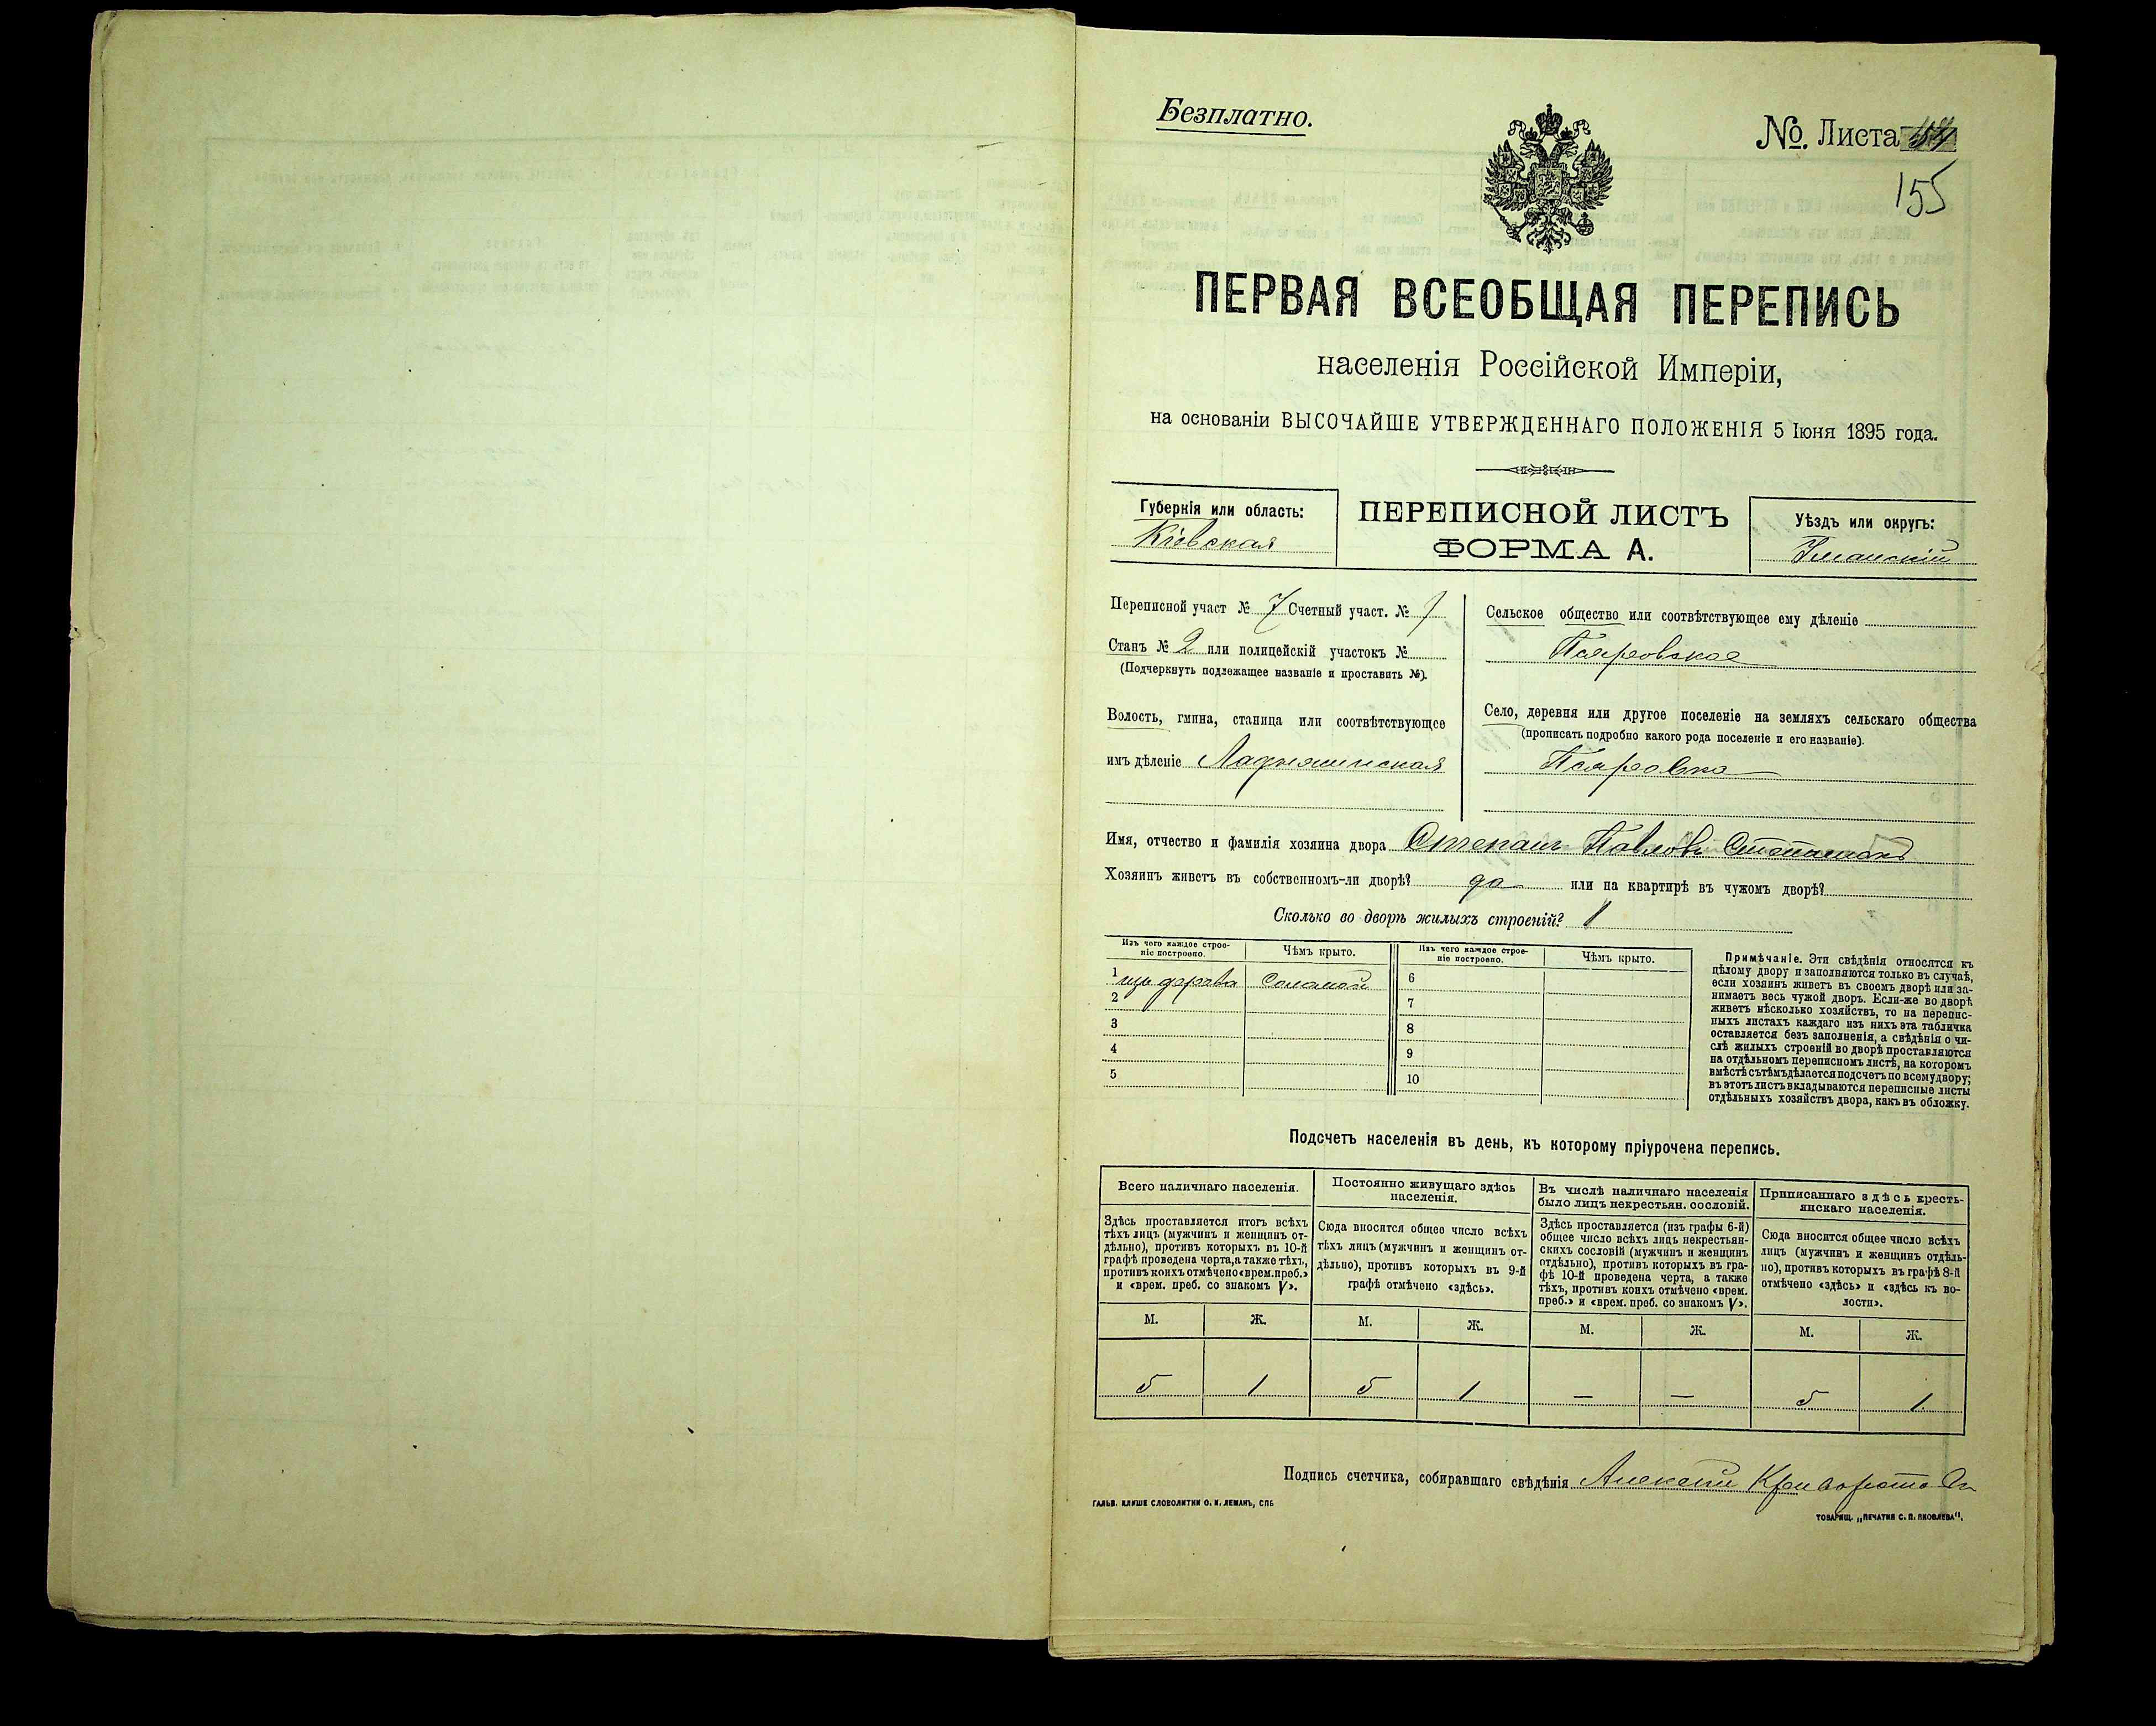 Безплатно.
№. Листа
155
ПЕРВАЯ ВСЕОБЩАЯ ПЕРЕПИСЬ
населенія Россійской Имперіи,
на основаніи ВЫСОЧАЙШЕ УТВЕРЖДЕННАГО ПОЛОЖЕНІЯ 5 Іюня 1895 года.
Губернія или область:
Кіевская
ПЕРЕПИСНОЙ ЛИСТЪ
ФОРМА А.
Уѣздъ или округъ:
Уманскій
Переписной участ № 7 Счетный участ. № 7
Станъ № 2 или полицейскій участокъ №
(Подчеркнуть подлежащее названіе и проставить №).
Волость, гмина, станица или соотвѣтствующее
имъ дѣленіе Ладыжинская
Сельское общество или соотвѣтствующее ему дѣленіе
Село, деревня или другое поселеніе на земляхъ сельскаго общества
(прописать подробно какого рода поселеніе и его названіе).
Имя, отчество и фамилія хозяина двора Степанъ Павловъ
Хозяинъ живетъ въ собственномъ-ли дворѣ? да или на квартирѣ въ чужомъ дворѣ?
Сколько во дворѣ жилыхъ строеній? 1
Изъ чего каждое строе-
ніе построено.
Чѣмъ крыто.
Изъ чего каждое строе-
ніе построено.
Чѣмъ крыто.
1 изъ дерева Соломой 6
2 7
3 8
4 9
5 10
Примѣчаніе. Эти свѣдѣнія относятся къ
цѣлому двору и заполняются только въ случаѣ,
если хозяинъ живетъ въ своемъ дворѣ или за-
нимаетъ весь чужой дворъ. Если-же во дворѣ
живетъ нѣсколько хозяйствъ, то на перепис-
ныхъ листахъ каждаго изъ нихъ эта табличка
оставляется безъ заполненія, а свѣдѣнія о чи-
слѣ жилыхъ строеній во дворѣ проставляются
на отдѣльномъ переписномъ листѣ, на которомъ
вмѣстѣ съ тѣмъ дѣлается подсчетъ по всему двору;
въ этотъ листъ вкладываются переписные листы
отдѣльныхъ хозяйствъ двора, какъ въ обложку.
Подсчетъ населенія въ день, къ которому пріурочена перепись.
Всего наличнаго населенія.
Здѣсь проставляется итогъ всѣхъ
тѣхъ лицъ (мужчинъ и женщинъ от-
дѣльно), противъ которыхъ въ 10-й
графѣ проведена черта, а также тѣхъ,
противъ коихъ отмѣчено «врем. преб.»
и «врем. преб. со знакомъ V».
Постоянно живущаго здѣсь
населенія.
Сюда вносится общее число всѣхъ
тѣхъ лицъ (мужчинъ и женщинъ от-
дѣльно), противъ которыхъ въ 9-й
графѣ отмѣчено «здѣсь».
Въ числѣ наличнаго населенія
было лицъ некрестьян. сословій.
Здѣсь проставляется (изъ графы 6-й)
общее число всѣхъ лицъ некрестьян-
скихъ сословій (мужчинъ и женщинъ
отдѣльно), противъ которыхъ въ гра-
фѣ 10-й проведена черта, а также
тѣхъ, противъ коихъ отмѣчено «врем.
преб.» и «врем. преб. со знакомъ V».
Приписаннаго здѣсь кресть-
янскаго населенія.
Сюда вносится общее число всѣхъ
лицъ (мужчинъ и женщинъ отдѣль-
но), противъ которыхъ въ графѣ 8-й
отмѣчено «здѣсь» и «здѣсь къ во-
лости».
М. Ж. М. Ж. М. Ж. М. Ж.
5 1 5 1 — — 5 1
Подпись счетчика, собиравшаго свѣдѣнія Алексѣй
ГАЛЬВ. КЛИШЕ СЛОВОЛИТНИ О. И. ЛЕМАНЪ, СПБ
ТОВАРИЩ. „ПЕЧАТНЯ С. П. ЯКОВЛЕВА".